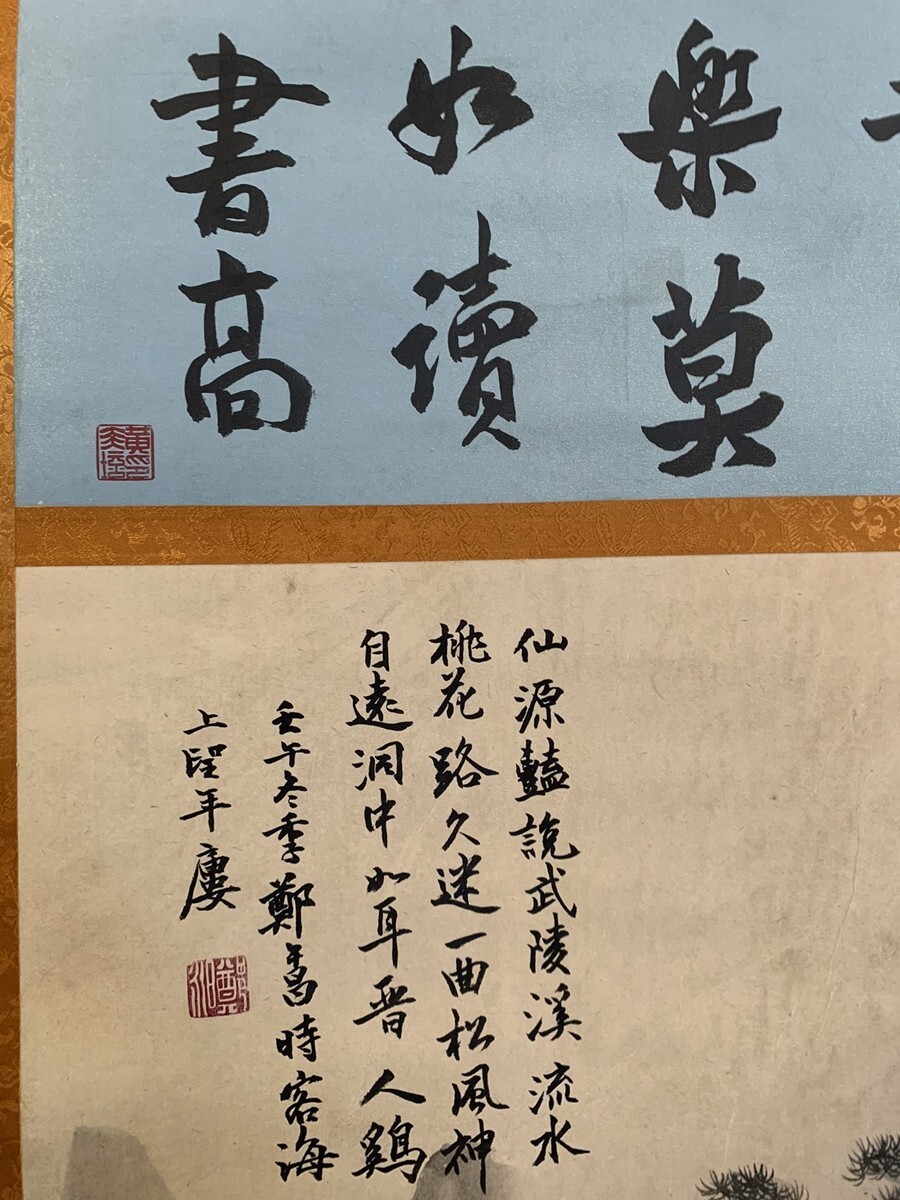 樂莫
如讀
書高
仙源豔說武陵溪流水
桃花路久迷一曲松風神
自遠洞中如耳晉人鷄
壬午冬季鄭午昌時客海
上望年廔
黃
鄭